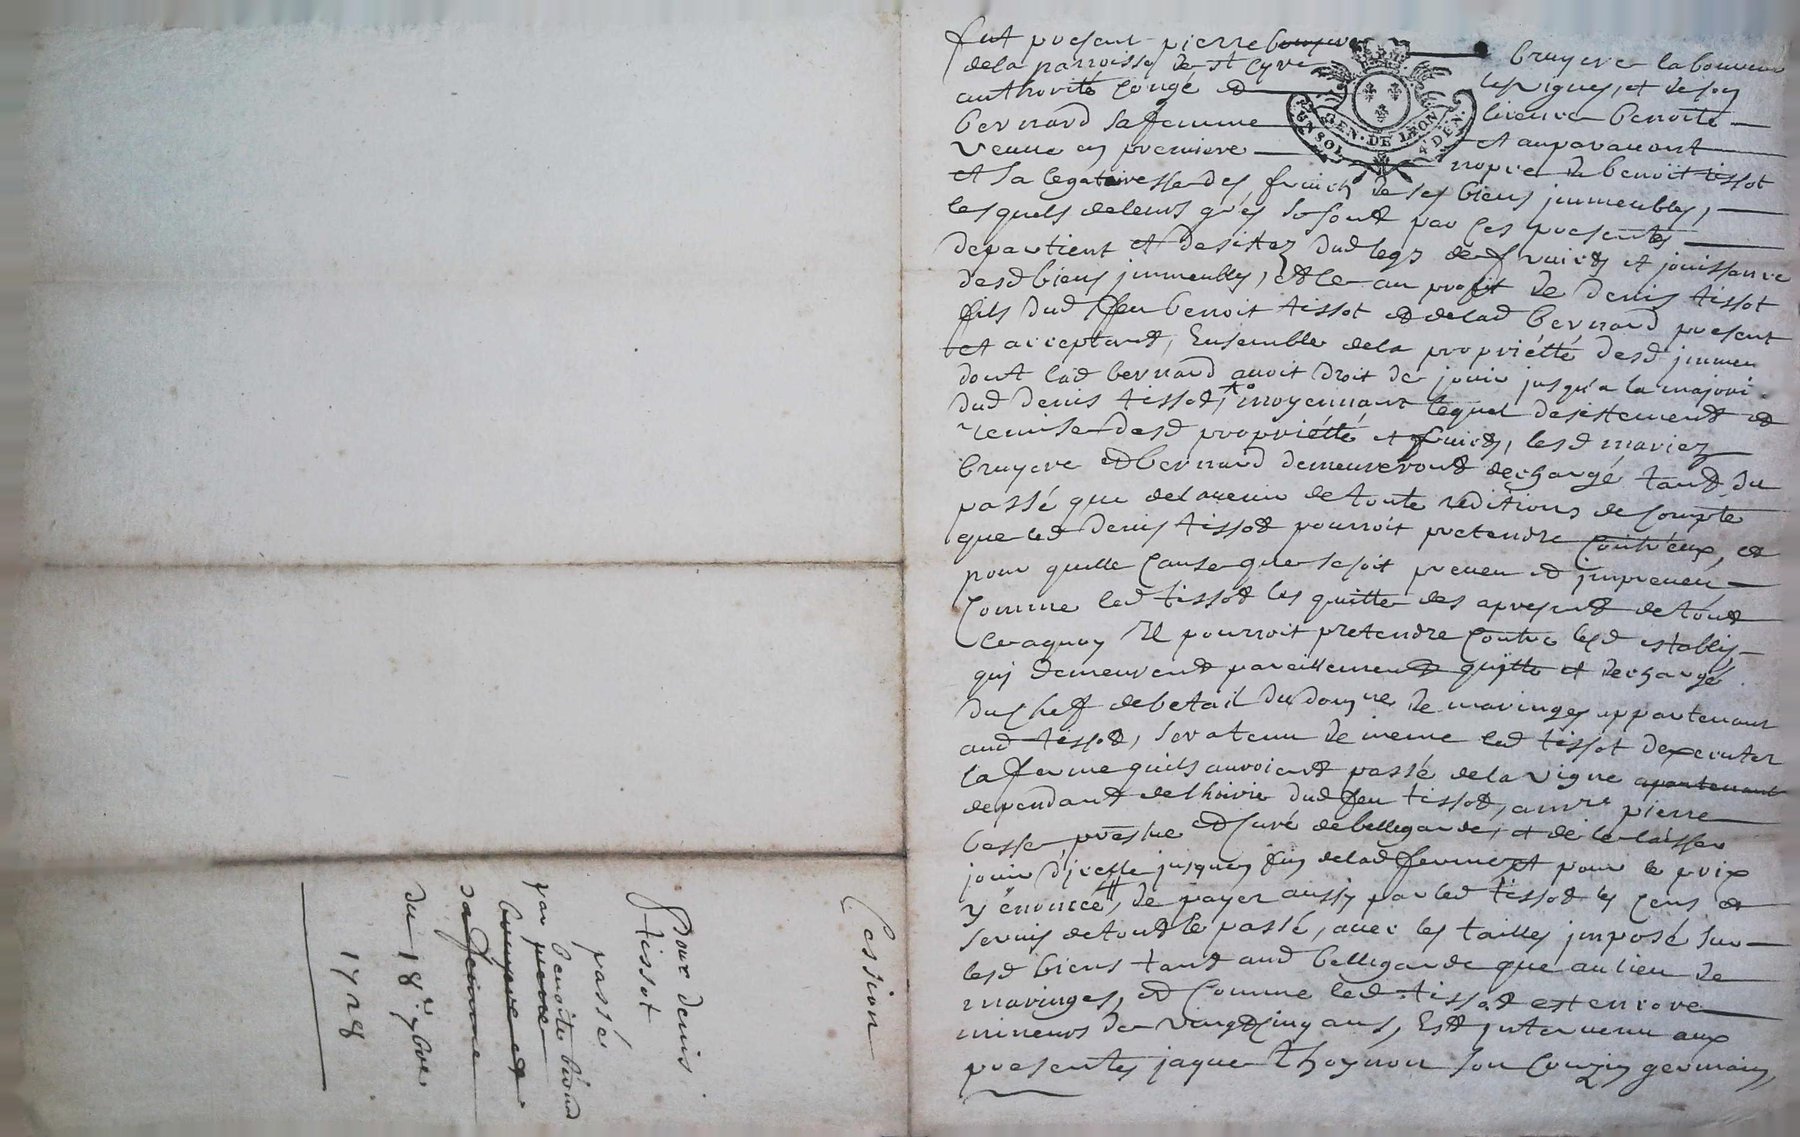 Cession
Pour denis
tissot
passé
par pierre benoite bernard
bruyere et
sa femme
du 18e 7bre
1728
fut present pierre bruyere laboureur
dela parroisse de st Cyre les vignes, et de son
authorité congé et licence benoite
bernard sa femme et auparavant
veuve en premiere nopce de benoit tissot
et sa legateresse des fruicts de ses biens jmmeubles,
lesquels deleurs gres se sont par ces presentes
departient et desistez dud legs de fruicts et jouissance
desd biens jmmeubles, et ce au profit de denis tissot
fils dud feu benoit tissot et delad bernard present
et acceptant, Ensemble dela propriétté desd jmmeu
dont lad bernard avoit droit de jouir jusqu'a la majori
dud denis tissot, moyennant lequel desistement et
remise desd propriétté et fruicts, lesd mariez
bruyere et bernard demeureront dechargé tant du
passé que delavenir de toute reditions de compte
que led denis tissot pourroit pretendre contr'eux, et
pour quelle cause que se soit preveu et jmpreveu
Comme led tissot les quitte des apresent de tout
ceaquoy Il pourroit pretendre contre lesd establis
qui demeurent pareillement quitte et dechargé
du cheff debetail du domne de maringes appartenant
aud tissot, sera tenu de meme led tissot dexecuter
la ferme quils auroient passé dela vigne apartenant
dependant delhoirie dud feu tissot, a mre pierre
basse, prestre et Curé de bellegarde, et de le laisser
jouir dicelle jusques fin delad ferme et pour le prix
y enoncée, de payer aussy par led tissot les cens et
servis de tout le passé, avec les tailles jmposé sur
lesd biens tant aud bellegarde que au lieu de
maringes, et comme led tissot est encore
mineurs de vingt cinq ans, Est jntervenu aux
presentes jaque thoynon son Couzin germain,
GEN. DE LEON
UN SOL 4 DEN.